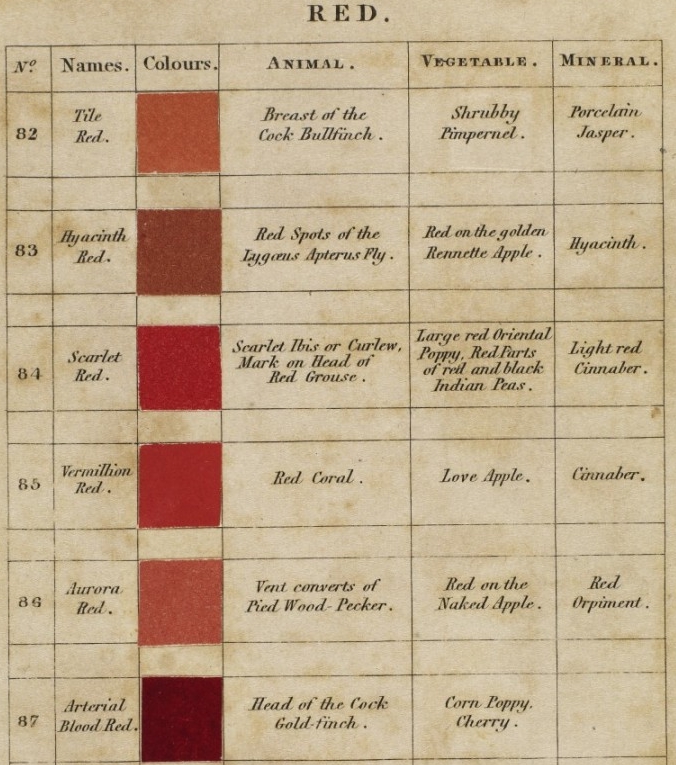 RED.
Nº Names. Colours. ANIMAL. VEGETABLE. MINERAL.
82
Tile
Red.
Breast of the
Cock Bullfinch.
Shrubby
Pimpernel.
Porcelain
Jasper.
83
Hyacinth
Red.
Red Spots of the
Lygœus Apterus Fly.
Red on the golden
Rennette Apple.
Hyacinth.
84
Scarlet
Red.
Scarlet Ibis or Curlew,
Mark on Head of
Red Grouse.
Large red Oriental
Poppy, Red Parts
of red and black
Indian Peas.
Light red
Cinnaber.
85
Vermillion
Red.
Red Coral.
Love Apple.
Cinnaber.
86
Aurora
Red.
Vent converts of
Pied Wood-Pecker.
Red on the
Naked Apple.
Red
Orpiment.
87
Arterial
Blood Red.
Head of the Cock
Gold-finch.
Corn Poppy.
Cherry.